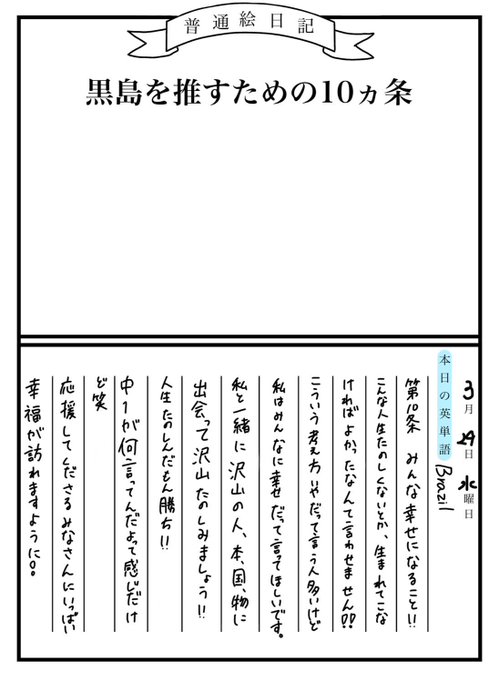 普通絵日記
黒島を推すための10ヵ条
3月29日水曜日
本日の英単語 Brazil
第10条 みんな幸せになること!!
こんな人生たのしくないとか、生まれてこな
ければよかったなんて言わせません!!
こういう考え方いやだって言う人多いけど
私はみんなに幸せだって言ってほしいです。
私と一緒に沢山の人、本、国、物に
出会って沢山たのしみましょう!!
人生たのしんだもん勝ち!!
中1が何言ってんだよって感じだけ
ど笑
応援してくださるみなさんにいっぱい
幸福が訪れますように!。